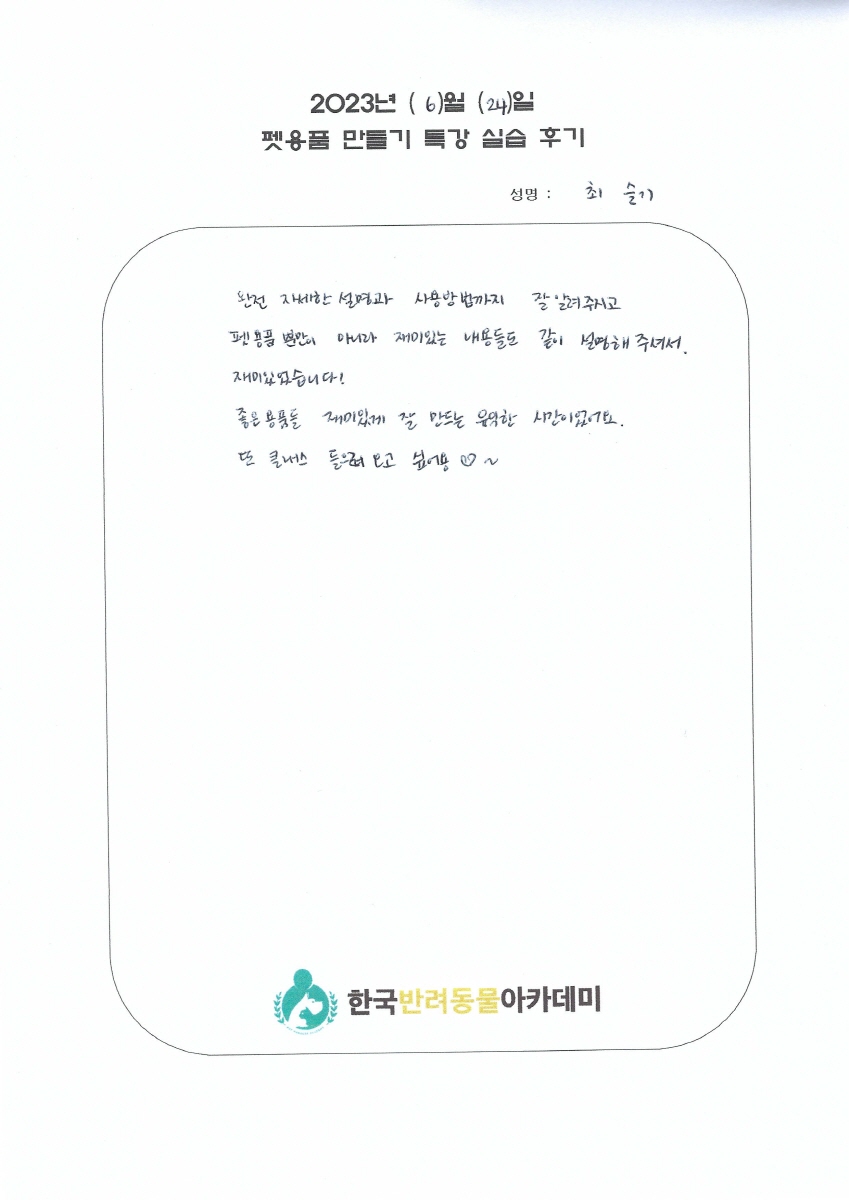 2023년 ( 6 )월 (24)일
펫용품 만들기 특강 실습 후기
성명 : 최 슬기
완전 자세한 설명과 사용방법까지 잘 알려주시고
펫용품 뿐만이 아니라 재미있는 내용들도 같이 설명해 주셔서.
재미있었습니다!
좋은용품들 재미있게 잘 만드는 유익한 시간이었어요.
또 클래스 들으러 오고 싶어용 ♡~
한국반려동물아카데미